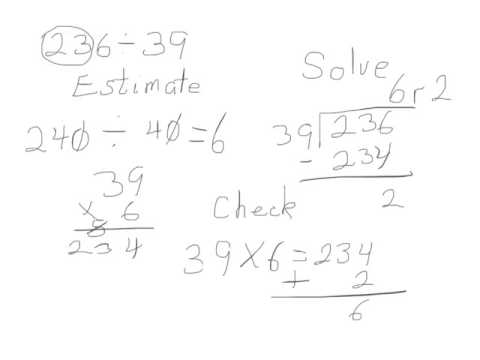 236÷39
Estimate
240 ÷ 40=6
39
× 6
5
234
Solve
6r2
39)236
- 234
2
Check
39×6=234
+ 2
6